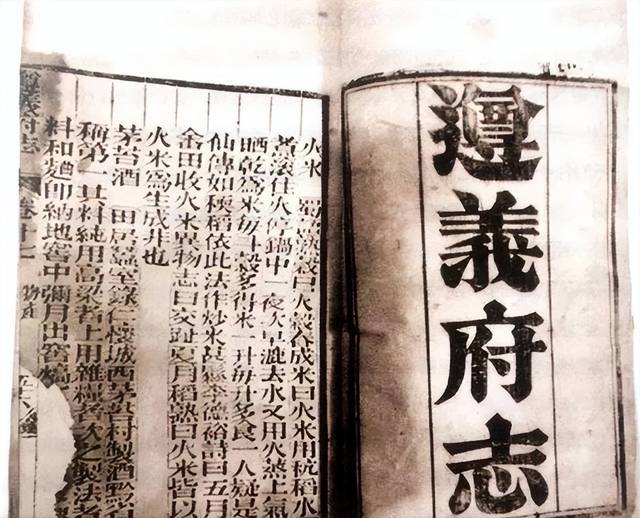 遵義府志
火米 蜀人蒸穀曰火穀舂成米曰火米用秔稻水
煮滾住火停鍋中一夜次早漉去水又用火蒸上氣
晒乾為米每斗穀多得米一升每升多食一人疑是
仙傳如稉稻依此法作炒米莫懸李德裕詩曰五月
畬田收火米異物志曰交趾夏月稻熟曰火米皆以
火米為生成非也
茅苔酒 田居蠶室錄仁懷城西茅苔村製酒黔省
稱第一其料純用高粱者上用雜糧者次之製法煮
料和麯即納地窖中彌月出窖熇
遵義府志 卷十七 物產